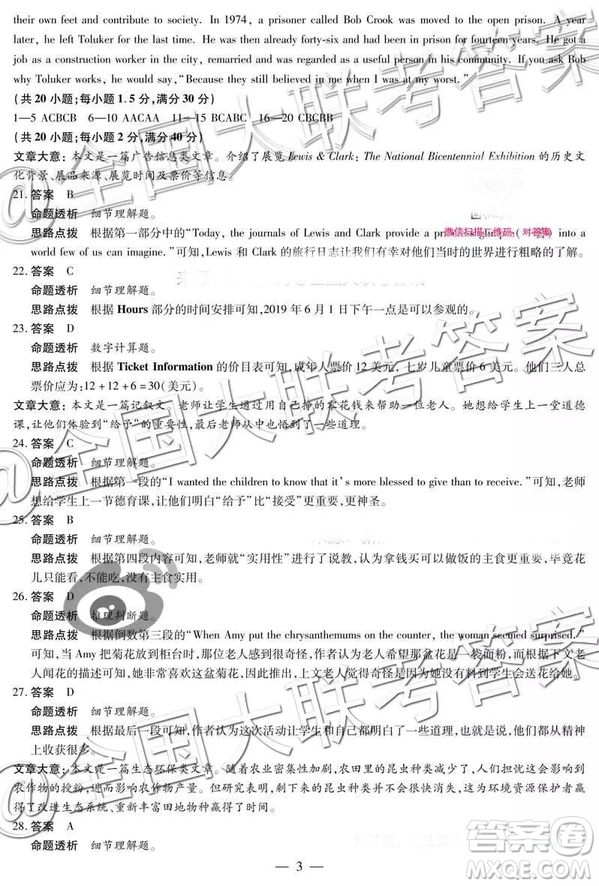 their own feet and contribute to society. In 1974, a prisoner called Bob Crook was moved to the open prison. A year
later, he left Toluker for the last time. He was then already forty-six and had been in prison for fourteen years. He got a
job as a construction worker in the city, remarried and was regarded as a useful person in his community. If you ask Bob
why Toluker works, he would say, "Because they still believed in me when I was at my worst."
(共 20 小题;每小题 1.5 分,满分 30 分)
1—5 ACBCB 6—10 AACAA 11—15 BCABC 16—20 CBCBB
(共 20 小题;每小题 2 分,满分 40 分)
文章大意:本文是一篇广告信息类文章。介绍了展览 Lewis & Clark: The National Bicentennial Exhibition 的历史文
化背景、展品来源、展览时间及票价等信息。
21. 答案 B
命题透析 细节理解题。
思路点拨 根据第一部分中的"Today, the journals of Lewis and Clark provide a into a
world few of us can imagine."可知,Lewis 和 Clark 的旅行日志让我们有幸对他们当时的世界进行粗略的了解。
22. 答案 C
命题透析 细节理解题。
思路点拨 根据 Hours 部分的时间安排可知,2019 年 6 月 1 日下午一点是可以参观的。
23. 答案 D
命题透析 数字计算题。
思路点拨 根据 Ticket Information 的价目表可知,成年人票价 12 美元,七岁儿童票价 6 美元。他们三人总
票价应为:12+12+6=30(美元)。
文章大意:本文是一篇记叙文。老师让学生通过用自己挣的零花钱来帮助一位老人。她想给学生上一堂道德
课,让他们体验到"给予"的重要性,最后老师从中也悟到了一些道理。
24. 答案 C
命题透析 细节理解题。
思路点拨 根据第一段的"I wanted the children to know that it's more blessed to give than to receive."可知,老师
想给学生上一节德育课,让他们明白"给予"比"接受"更重要,更神圣。
25. 答案 B
命题透析 细节理解题。
思路点拨 根据第四段内容可知,老师就"实用性"进行了说教,认为拿钱买可以做饭的主食更重要,毕竟花
儿只能看,不能吃,没有主食实用。
26. 答案 D
命题透析 推理判断题。
思路点拨 根据倒数第三段的"When Amy put the chrysanthemums on the counter, the woman seemed surprised."
可知,当 Amy 把菊花放到柜台时,老人感到很奇怪,作者认为老人希望那盆花是一袋面粉,而根据下文老人
见花的描述可知,她非常喜欢这盆菊花,因此可推出。老人觉得奇怪是因为她没料到学生会送花给她。
27. 答案 D
命题透析 细节理解题。
思路点拨 根据最后一段可知,作者认为这次活动让学生和自己都明白了一些道理,也就是说她们在精神
上收获了一些。
文章大意:本文是一篇生态环保类文章。随着农业密集性加剧,农田里的昆虫种类减少了,担忧的是这会影响到
农作物的授粉,进而影响农作物产量。但研究表明,剩下来的昆虫种类不能全部消失,这为环境资源保护者
们改进生态系统、重新丰富田地物种赢得了时间。
28. 答案 A
命题透析 细节理解题。
— 3 —
@全国大联考答案
微信扫描
答案卷
MXQE.COM